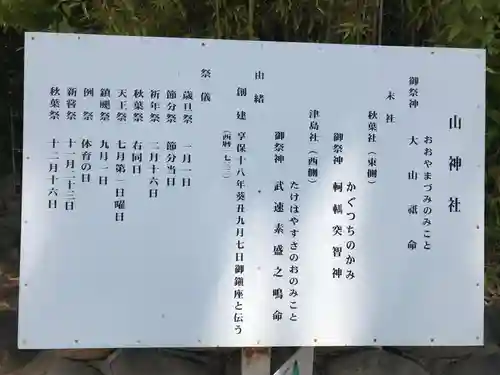 山神社
御祭神
おおやまづみのみこと
大山祗命
末社
秋葉社（東側）
御祭神
かぐつちのかみ
軻軱突智神
津島社（西側）
御祭神
たけはやすさのおのみこと
武速素盛之鳴命
由緒
創建 享保十八年葵丑九月七日御鎮座と伝う
祭儀
歳旦祭 一月一日
節分祭 節分当日
祈年祭 二月十六日
秋葉祭 右同日
天王祭 七月第一日曜日
鎮颱祭 九月一日
例祭 体育の日
新嘗祭 十一月二十三日
秋葉祭 十二月十六日